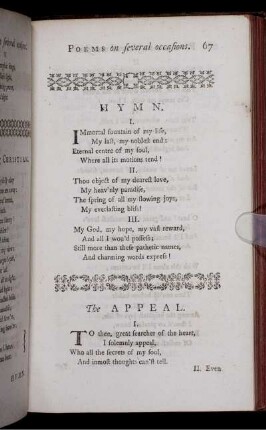 POEMS on several occasions. 67
HYMN.
I.
IMmortal fountain of my life,
My last, my noblest end:
Eternal centre of my soul,
Where all its motions tend!
II.
Thou object of my dearest love,
My heav'nly paradise,
The spring of all my flowing joys,
My everlasting bliss!
III.
My God, my hope, my vast reward,
And all I wou'd possess;
Still more than these pathetic names,
And charming words express!
The APPEAL.
I.
TO thee, great searcher of the heart,
I solemnly appeal,
Who all the secrets of my soul,
And inmost thoughts can'st tell.
II. Even